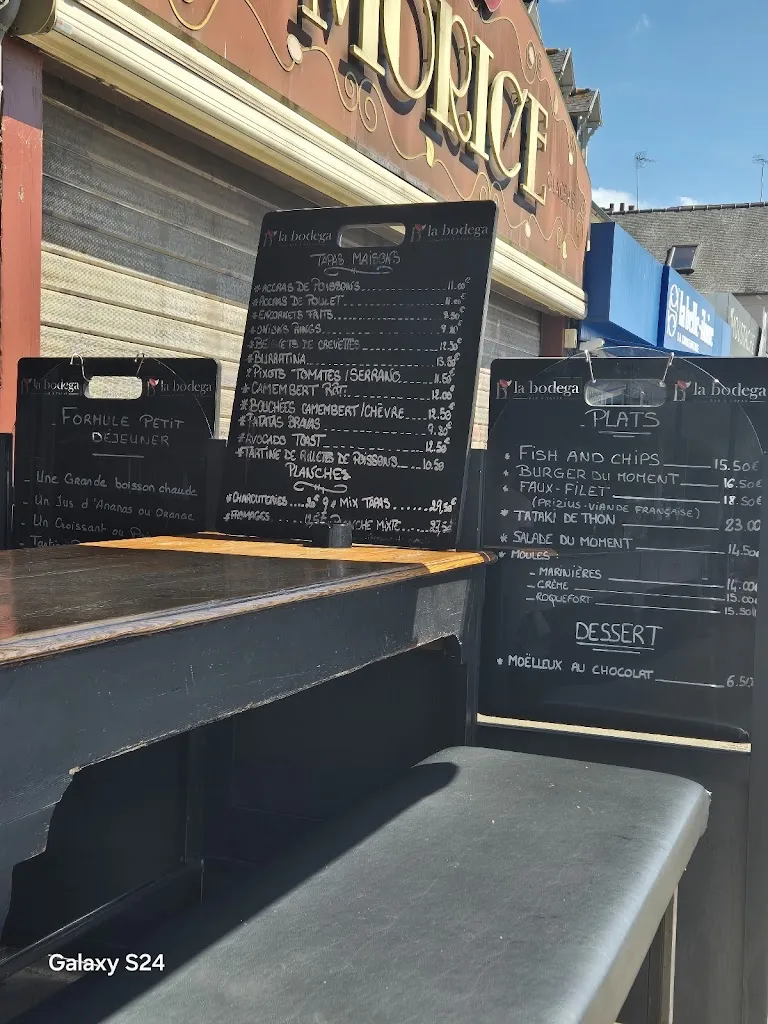 MORICE
la bodega la bodega
FORMULE PETIT
DEJEUNER
_ Une Grande boisson chaude
_ Un Jus d'Ananas ou Orange
_ Un Croissant ou
la bodega la bodega
TAPAS MAISONS
*ACCRAS DE POISSONS 11.00€
*ACCRAS DE POULET 11.00€
*ENCORNETS FRITS 9.50€
*ONIONS RINGS
*BEIGNETS DE CREVETTES 12.50€
*BURRATINA 13.50€
*PIXOTS TOMATES /SERRANO 11.50€
*CAMEMBERT RÔT. 12.00€
*BOUCHÉES CAMEMBERT/CHÈVRE 12.50€
*PATATAS BRAVAS 9.80€
*AVOCADO TOAST 12.50€
*TARTINE DE RILLETTES DE POISSONS 10.50
PLANCHES
*CHARCUTERIES * MIX TAPAS 29.50€
*FROMAGES MIXTE 27.50€
la bodega la bodega
PLATS
* FISH AND CHIPS 15.50€
* BURGER DU MOMENT 16.50€
* FAUX-FILET 18.50€
(PRIZIUS-VIANDE FRANÇAISE)
* TATAKI DE THON 23.00
* SALADE DU MOMENT 14.50€
* MOULES :
_ MARINIÈRES 14.00€
_ CRÈME 15.00€
_ ROQUEFORT 15.50€
DESSERT
* MOËLLEUX AU CHOCOLAT 6.50
la belle-iloise
Galaxy S24